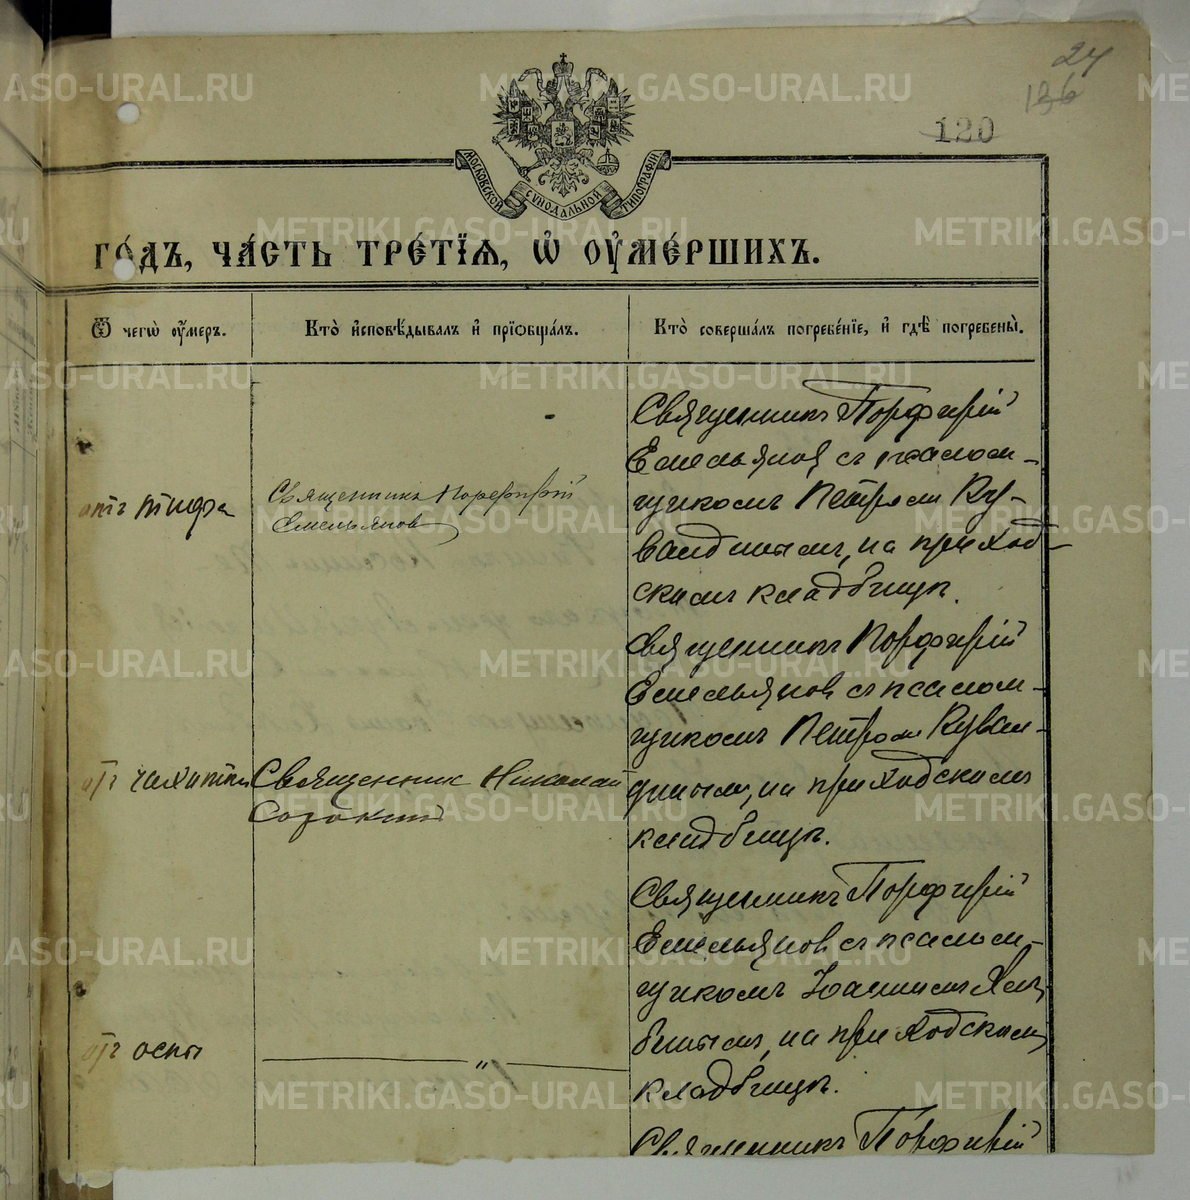 24
136
120
МОСКОВСКОЙ СУНОДАЛЬНОЙ ТИПОГРАФІИ.
го́дъ, ча́сть тре́тїѧ, ѡ҆ ᲂу҆ме́ршихъ.
Ѿ чегѡ̀ ᲂу҆́меръ.
Кто̀ и҆сповѣ́дывалъ и҆ прїѻбща́лъ.
Кто̀ соверша́лъ погребе́нїе, и҆ гдѣ̀ погребены̀.
отъ тифа
Священникъ Порфирій
Емельянов
Священникъ Порфирій
Емельянов съ псалом-
щикомъ Петром Ку-
вандиным, на приход-
скомъ кладбищѣ.
отъ чахотки
Священник Николай
Сорокинъ
Священникъ Порфирій
Емельянов съ псалом-
щикомъ Петром Куван-
диным, на приходскомъ
кладбищѣ.
отъ оспы
"
Священникъ Порфирій
Емельянов съ псалом-
щикомъ Іоанномъ Хлѣ-
биным, на приходскомъ
кладбищѣ.
Священникъ Порфирій
METRIKI.GASO-URAL.RU